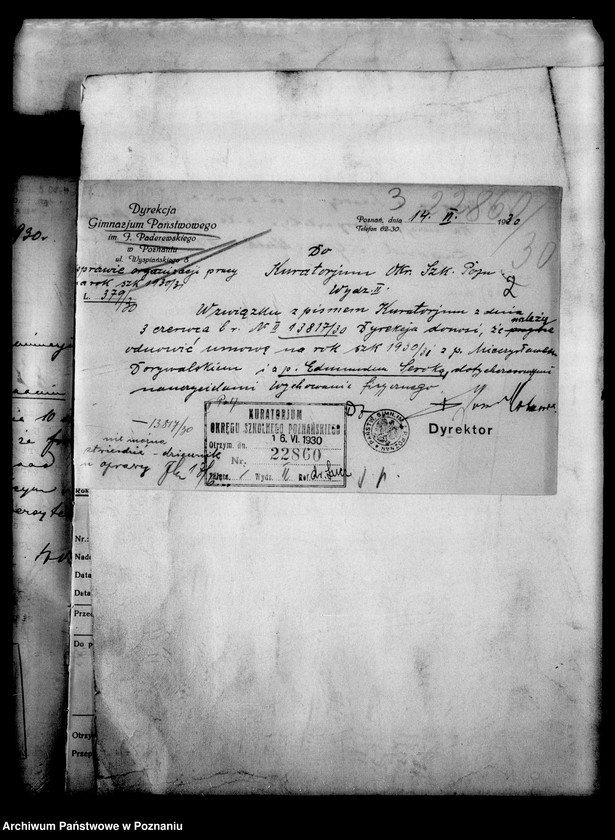 3 22860/30
Dyrekcja
Gimnazjum Państwowego
im. I. Paderewskiego
w Poznaniu
ul. Wyspiańskiego 8
Poznań, dnia 14. VI. 1930
Telefon 62-30.
sprawie organizacji pracy
na rok szk 1930/31
L. 379/30
Do
Kuratorjum Okr. Szk. Pozn
Wydz. II.
W związku z pismem Kuratorjum z dnia
3 czerwca b r. N II 13817/30 Dyrekcja donosi, że należy
odnowić umowę na rok szk 1930/31 z p. Mieczysławem
i z p. Edmundem dotychczasowymi
nauczycielami Wychowania fizycznego.
Dyrektor
13817/30
nie można
KURATORJUM
OKRĘGU SZKOLNEGO POZNAŃSKIEGO
Otrzym. dn. 16. VI. 1930
Nr. 22860
Wydz. II Ref.
930.
Nr.:
Data
Data
Do p
Archiwum Państwowe w Poznaniu